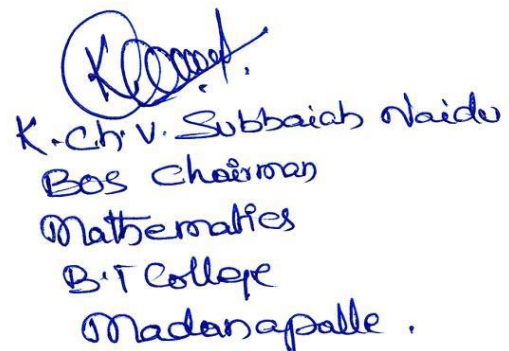 K.Ch.V. Subbaiah Naidu
BOS Chairman
Mathematics
B.T College
Madanapalle.